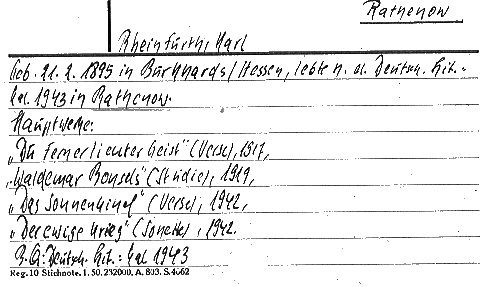 Rathenow
Rheinfurth, Karl
Geb. 21. 2. 1895 in Burkhards/Hessen, lebte n. d. Deutsch. Lit.-
Kal. 1943 in Rathenow.
Hauptwerke:
"Du Geist" (Verse), 1917,
"Waldemar Bonsels" (Studie), 1919,
"Das Sonnenkind" (Verse), 1942,
"Der ewige Krieg" (Sonette), 1942.
Q.: Deutsch. Lit.: Kal 1943
Reg. 10 Stichnote. 1. 50. 232000. A. 803. S. 4662